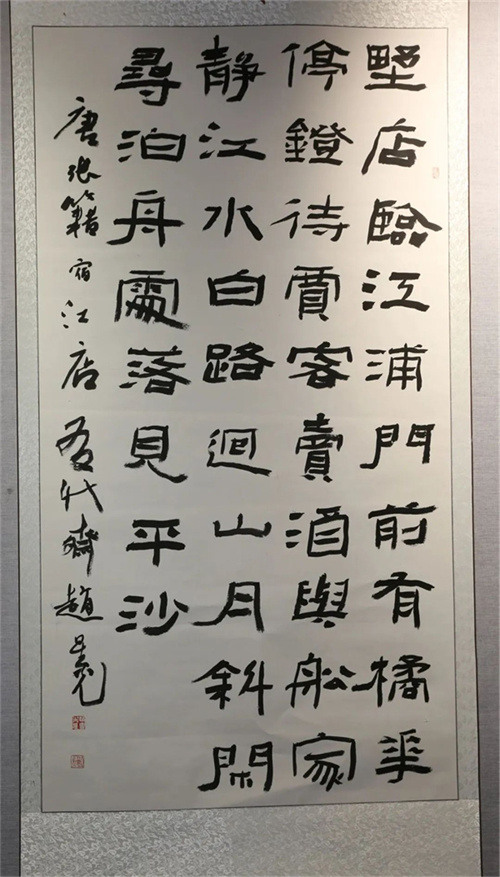 墅店臨江浦門前有橘華
停鐙待賈客賣酒與舩家
靜江水白路迴山月斜閑
尋泊舟處落見平沙
唐張籍宿江店 趙